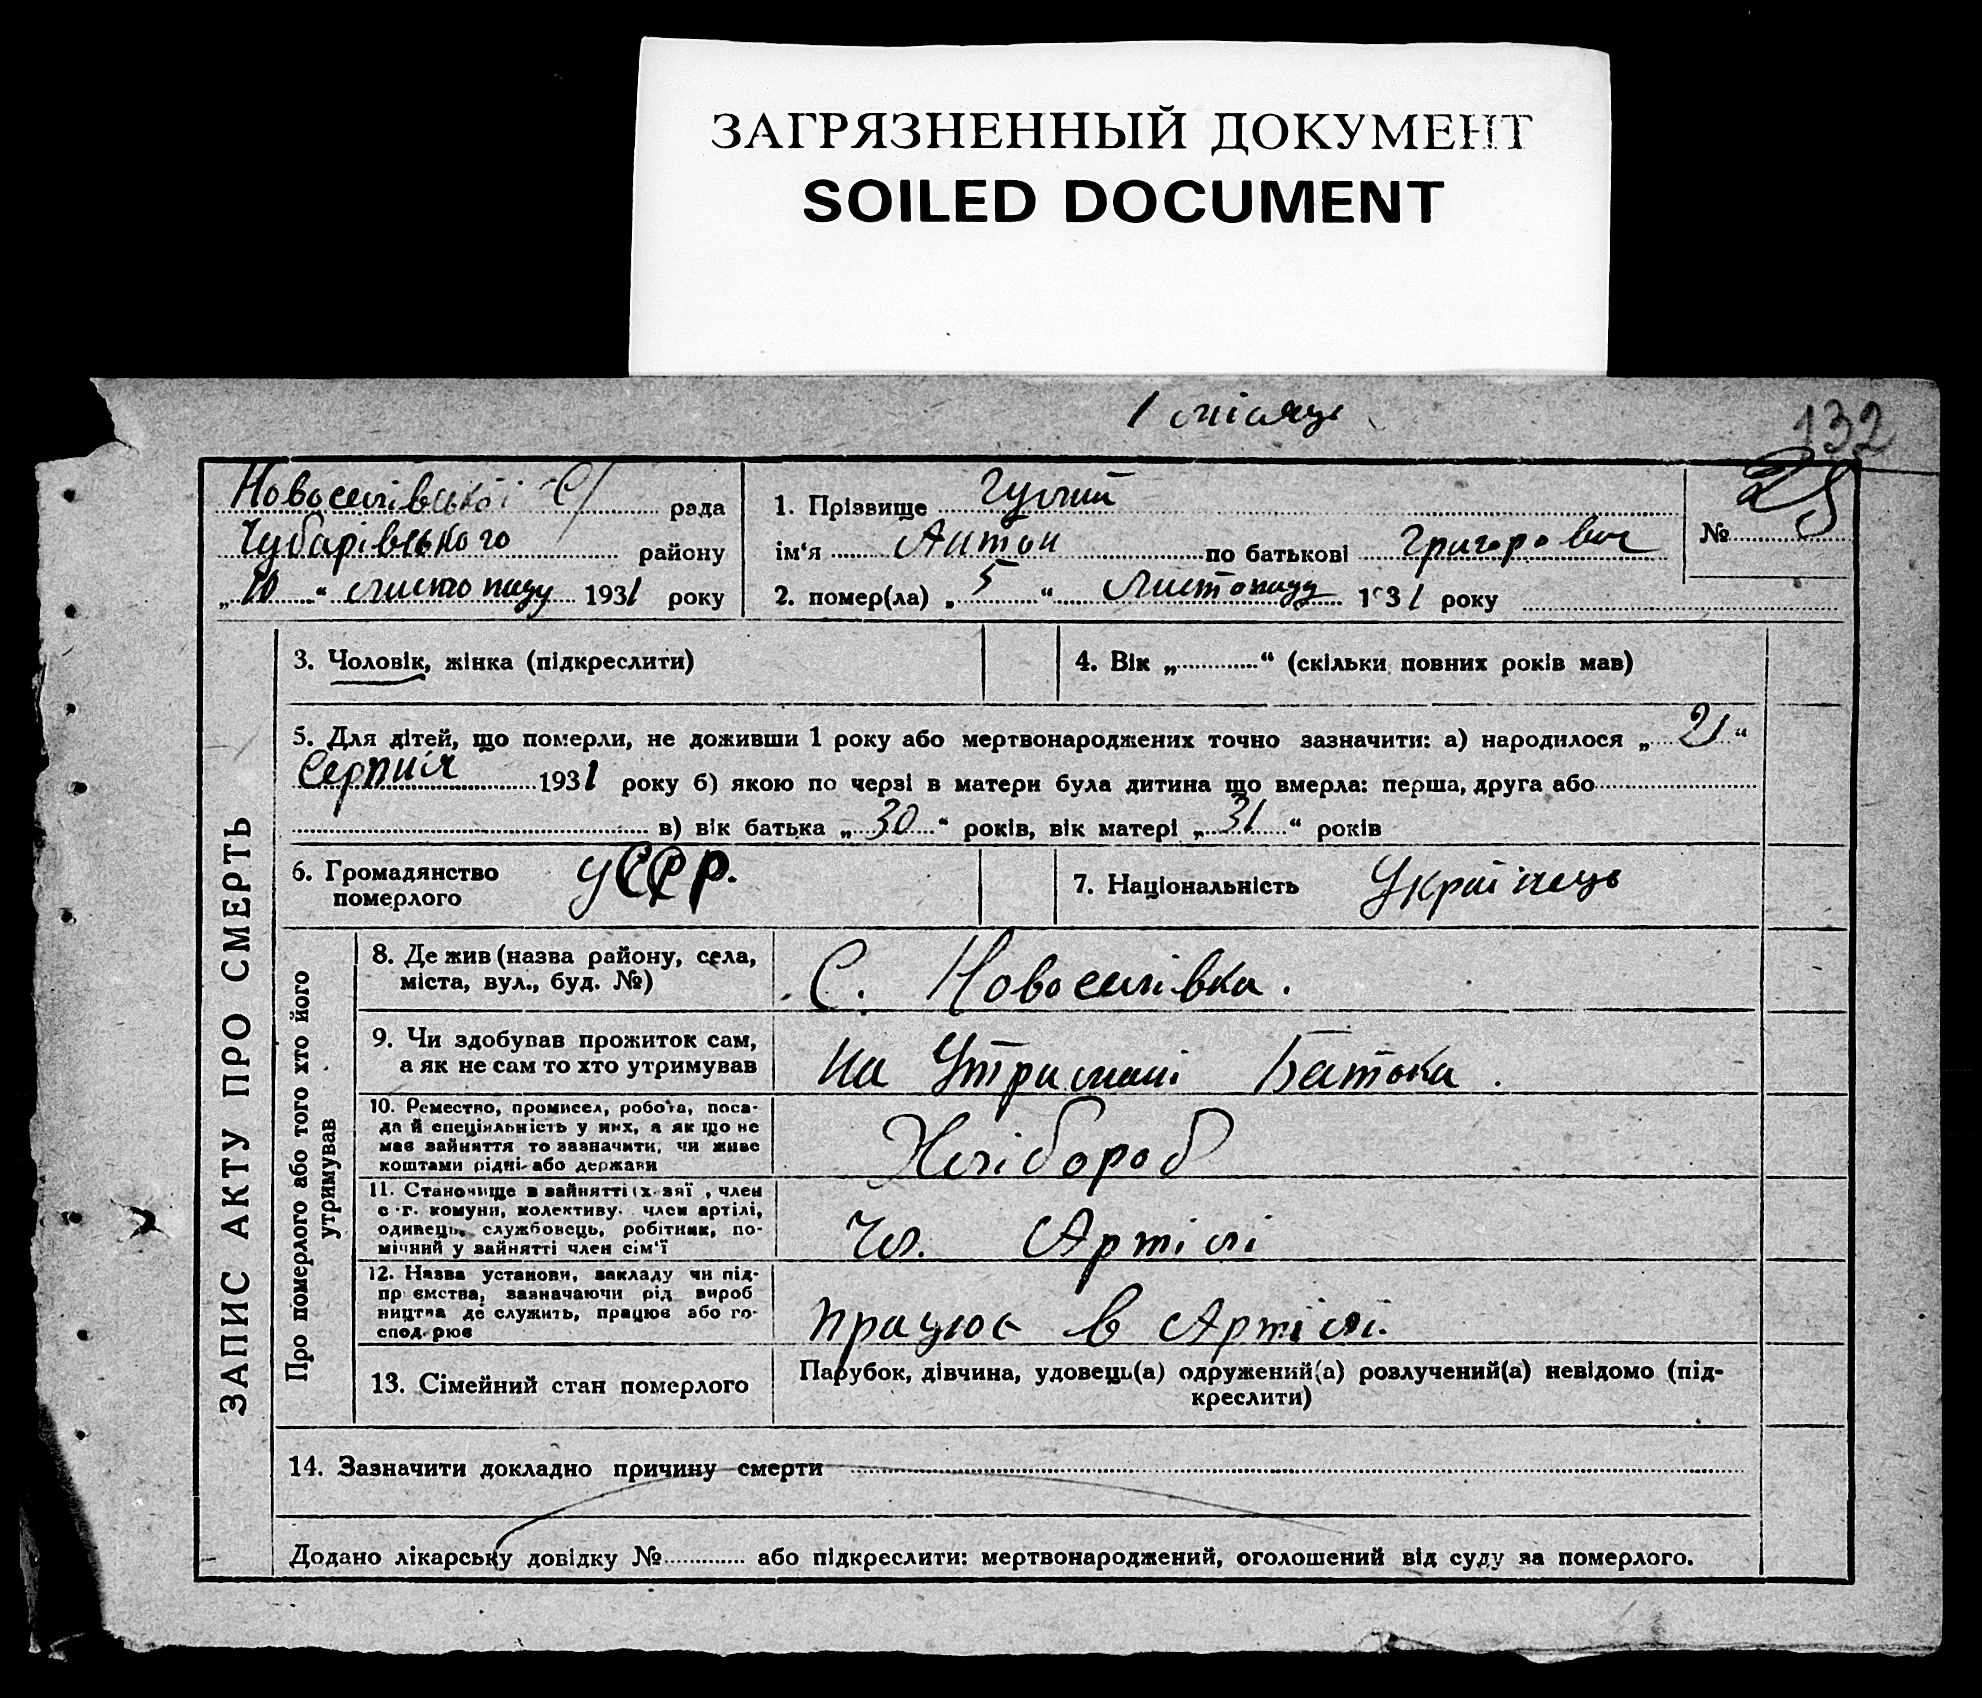 ЗАГРЯЗНЕННЫЙ ДОКУМЕНТ
SOILED DOCUMENT
1 місяць
132
Новоселівської С/ рада
Чубарівського району
„10“ листопаду 1931 року
1. Прізвище Гулий
ім'я Антон по батькові Григорович
2. помер(ла) „5“ Листопаду 1931 року
№ 25
ЗАПИС АКТУ ПРО СМЕРТЬ
3. Чоловік, жінка (підкреслити)
4. Вік „.............“ (скільки повних років мав)
5. Для дітей, що померли, не доживши 1 року або мертвонароджених точно зазначити: а) народилося „21“
Серпня 1931 року б) якою по черзі в матери була дитина що вмерла: перша, друга або
в) вік батька „30“ років, вік матері „31“ років
6. Громадянство
померлого
УССР.
7. Національність Українець
Про померлого або того хто його
утримував
8. Де жив (назва району, села,
міста, вул., буд. №)
С. Новоселівка.
9. Чи здобував прожиток сам,
а як не сам то хто утримував
На Утримані Батька.
10. Ремество, промисел, робота, поса-
да й спеціяльність у них, а як що не
має зайняття то зазначити, чи живе
коштами рідні або держави
Хлібороб
11. Становище в зайнятті, член
с.-г. комуни, колективу, член артілі,
одинець, службовець, робітник, по-
мічний у зайнятті член сім'ї
Чл. Артілі
12. Назва установи, закладу чи під-
пр ємства, зазначаючи рід вироб
ництва де служить, працює або го-
спод рює
працює в Артілі.
13. Сімейний стан померлого
Парубок, дівчина, удовець(а) одружений(а) розлучений(а) невідомо (під-
креслити)
14. Зазначити докладно причину смерти
Додано лікарську довідку №............. або підкреслити: мертвонароджений, оголошений від суду за померлого.